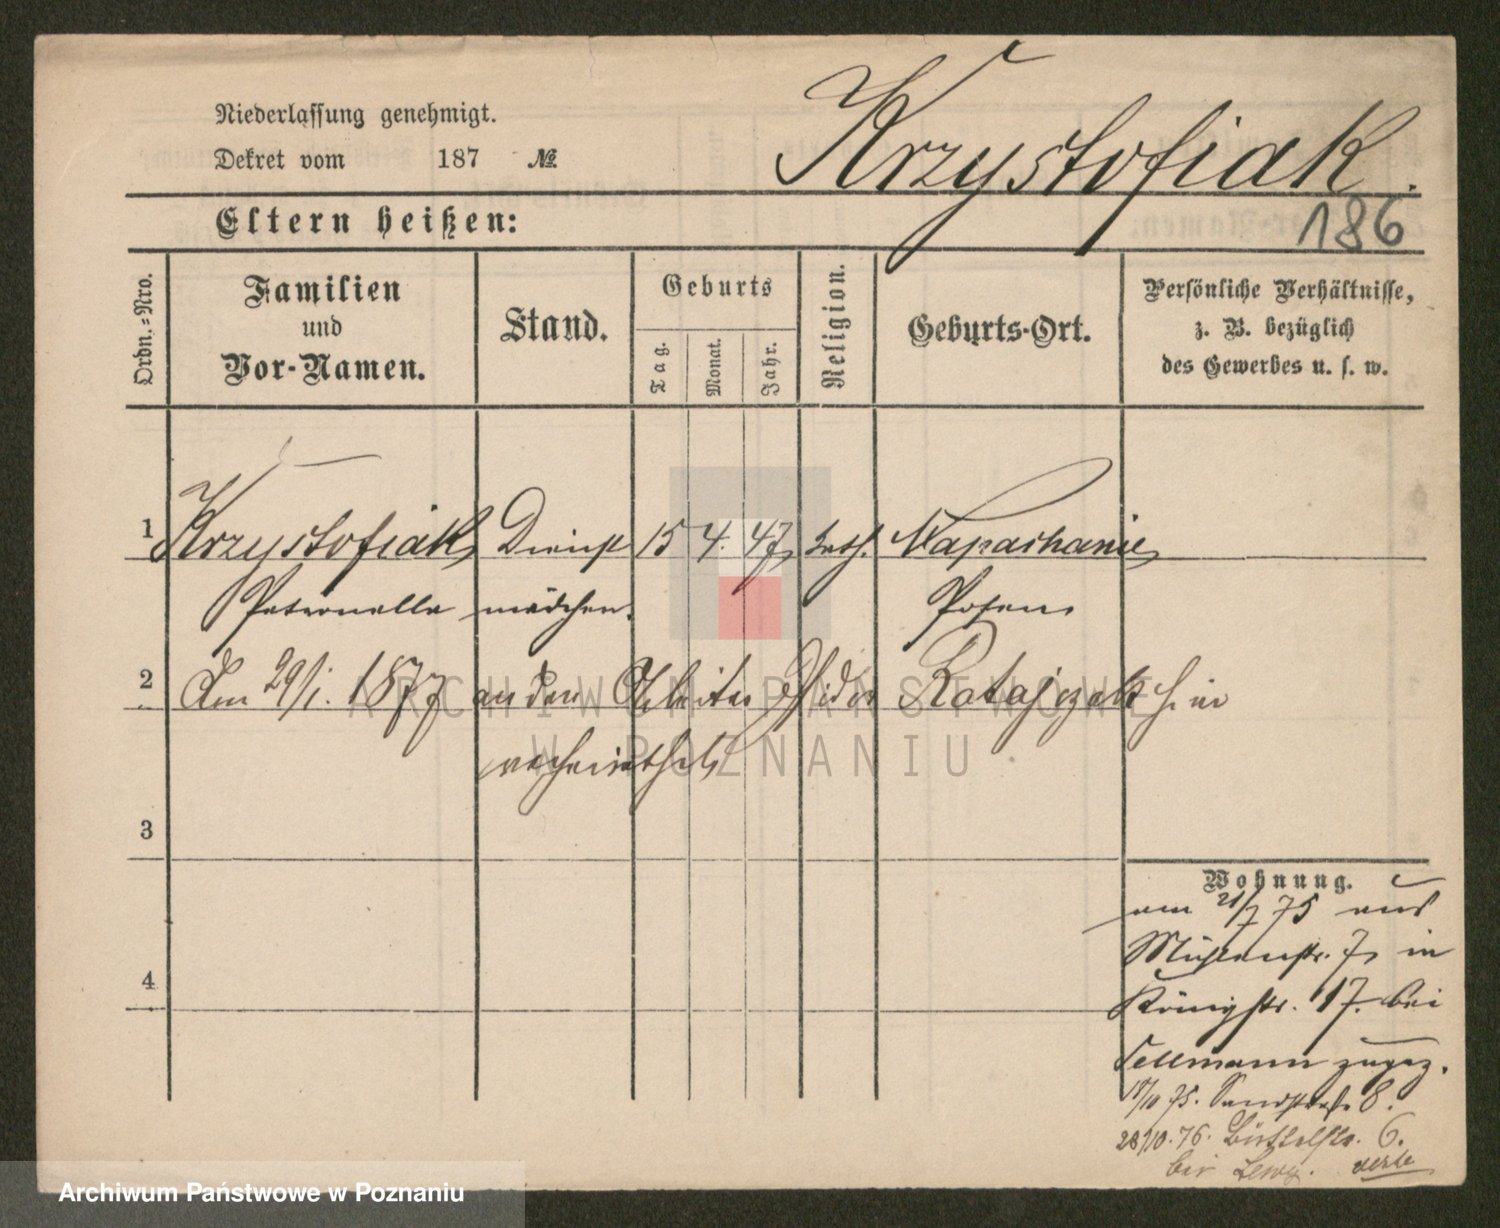 Niederlassung genehmigt.
Dekret vom 187 №
Krzystofiak.
Eltern heißen:
186
Ordn.-Nro.
Familien
und
Vor-Namen.
Stand.
Geburts
Tag.
Monat.
Jahr.
Religion.
Geburts-Ort.
Persönliche Verhältnisse,
z. B. bezüglich
des Gewerbes u. s. w.
1 Krzystofiak, Dienst 15 4. 47, kath. Napachanie,
Peternella mädchen. Posen
2 Am 29/1. 1877 an den Arbeiter Isidor Ratajczak hier
verheirathet
3
4
Wohnung.
am 21/7 75 aus
Mühlenstr. 7, in
Königstr. 17. bei
Tellmann zugez.
18/10 75. Sandstraße 8.
28/10. 76. Büttelstr. 6.
bei Lewy.
ARCHIWUM PAŃSTWOWE
W POZNANIU
Archiwum Państwowe w Poznaniu